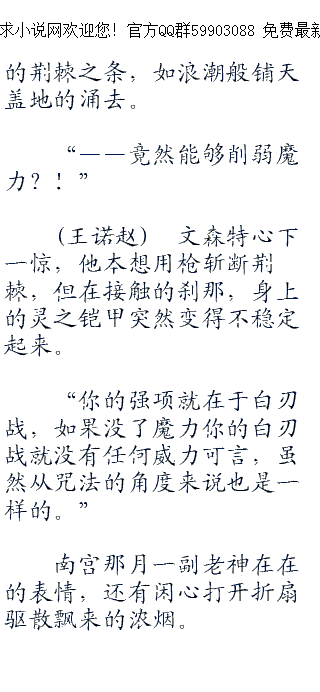 求小说网欢迎您！官方QQ群59903088 免费最新
的荆棘之条，如浪潮般铺天
盖地的涌去。
“——竟然能够削弱魔
力？！”
(王诺赵) 文森特心下
一惊，他本想用枪斩断荆
棘，但在接触的刹那，身上
的灵之铠甲突然变得不稳定
起来。
“你的强项就在于白刃
战，如果没了魔力你的白刃
战就没有任何威力可言，虽
然从咒法的角度来说也是一
样的。”
南宫那月一副老神在在
的表情，还有闲心打开折扇
驱散飘来的浓烟。